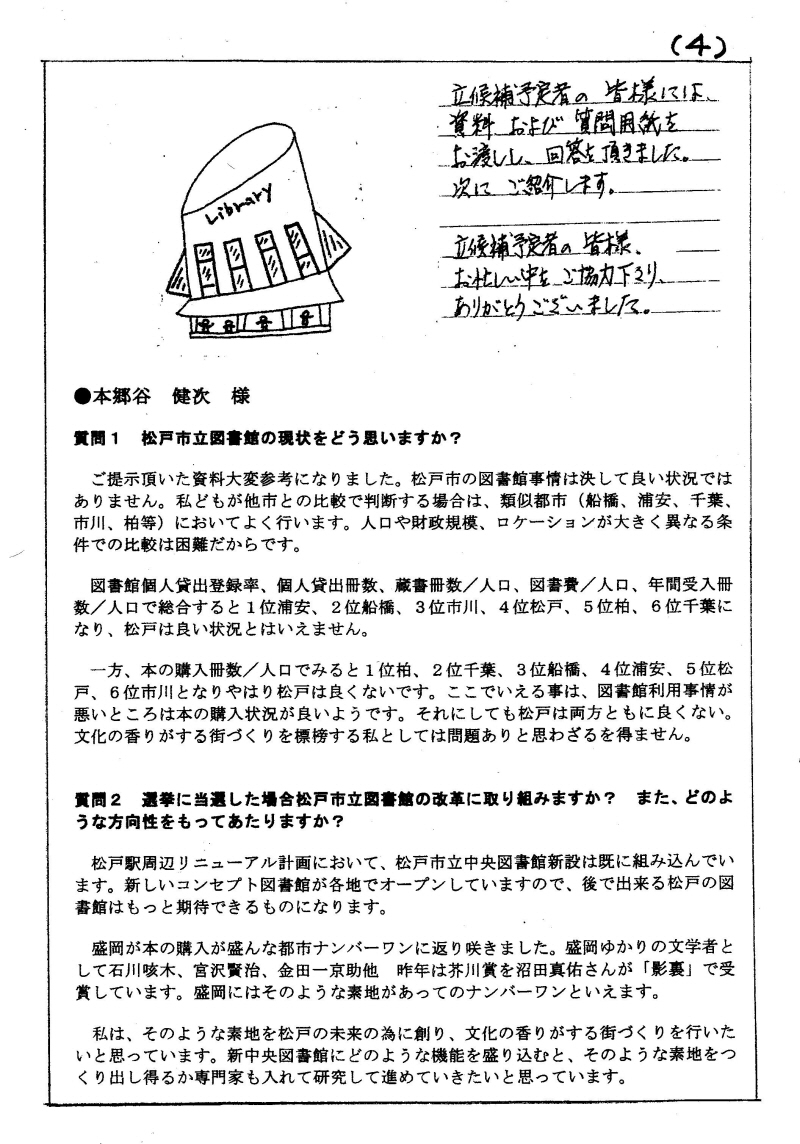 (4)
立候補予定者の 皆様には、
資料 および 質問用紙を
お渡しし、回答を頂きました。
次に ご紹介します。
立候補予定者の 皆様、
お忙しい中を ご協力下さり、
ありがとうございました。
Library
●本郷谷　健次　様
質問１　松戸市立図書館の現状をどう思いますか？
ご提示頂いた資料大変参考になりました。松戸市の図書館事情は決して良い状況では
ありません。私どもが他市との比較で判断する場合は、類似都市（船橋、浦安、千葉、
市川、柏等）においてよく行います。人口や財政規模、ロケーションが大きく異なる条
件での比較は困難だからです。
図書館個人貸出登録率、個人貸出冊数、蔵書冊数／人口、図書費／人口、年間受入冊
数／人口で総合すると１位浦安、２位船橋、３位市川、４位松戸、５位柏、６位千葉に
なり、松戸は良い状況とはいえません。
一方、本の購入冊数／人口でみると１位柏、２位千葉、３位船橋、４位浦安、５位松
戸、６位市川となりやはり松戸は良くないです。ここでいえる事は、図書館利用事情が
悪いところは本の購入状況が良いようです。それにしても松戸は両方ともに良くない。
文化の香りがする街づくりを標榜する私としては問題ありと思わざるを得ません。
質問２　選挙に当選した場合松戸市立図書館の改革に取り組みますか？　また、どのよ
うな方向性をもってあたりますか？
松戸駅周辺リニューアル計画において、松戸市立中央図書館新設は既に組み込んでい
ます。新しいコンセプト図書館が各地でオープンしていますので、後で出来る松戸の図
書館はもっと期待できるものになります。
盛岡が本の購入が盛んな都市ナンバーワンに返り咲きました。盛岡ゆかりの文学者と
して石川啄木、宮沢賢治、金田一京助他　昨年は芥川賞を沼田真佑さんが「影裏」で受
賞しています。盛岡にはそのような素地があってのナンバーワンといえます。
私は、そのような素地を松戸の未来の為に創り、文化の香りがする街づくりを行いた
いと思っています。新中央図書館にどのような機能を盛り込むと、そのような素地をつ
くり出し得るか専門家も入れて研究して進めていきたいと思っています。